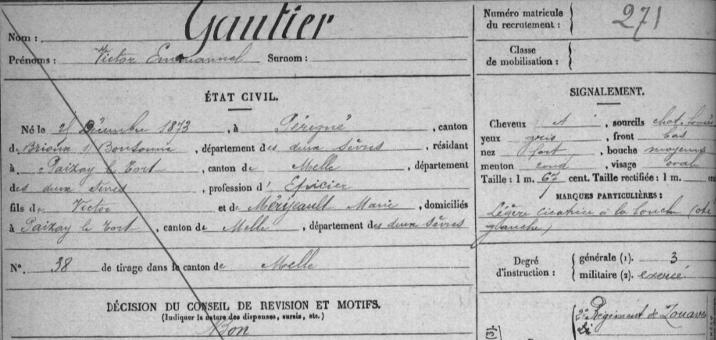 Nom : Gautier
Prénoms : Victor Emmanuel Surnom :
ÉTAT CIVIL.
Né le 21 Décembre 1873, à Périgné, canton
de Brioux s/ Boutonne, département des deux Sèvres, résidant
à Paizay le Tort, canton de Melle, département
des deux Sèvres, profession d' Épicier
fils de Victor et de Méripault Marie, domiciliés
à Paizay le Tort, canton de Melle, département des deux Sèvres
N° 38 de tirage dans le canton de Melle
DÉCISION DU CONSEIL DE REVISION ET MOTIFS.
(Indiquer la nature des dispenses, sursis, etc.)
Bon
Numéro matricule
du recrutement : 271
Classe
de mobilisation :
SIGNALEMENT.
Cheveux et sourcils
yeux gris, front bas
nez fort, bouche moyenne
menton rond, visage oval
Taille : 1 m. 67 cent. Taille rectifiée : 1 m.
MARQUES PARTICULIÈRES :
Légère cicatrice à la bouche (côté
gauche)
Degré
d'instruction :
générale (1). 3
militaire (2). exercé
Régiment de Zouaves